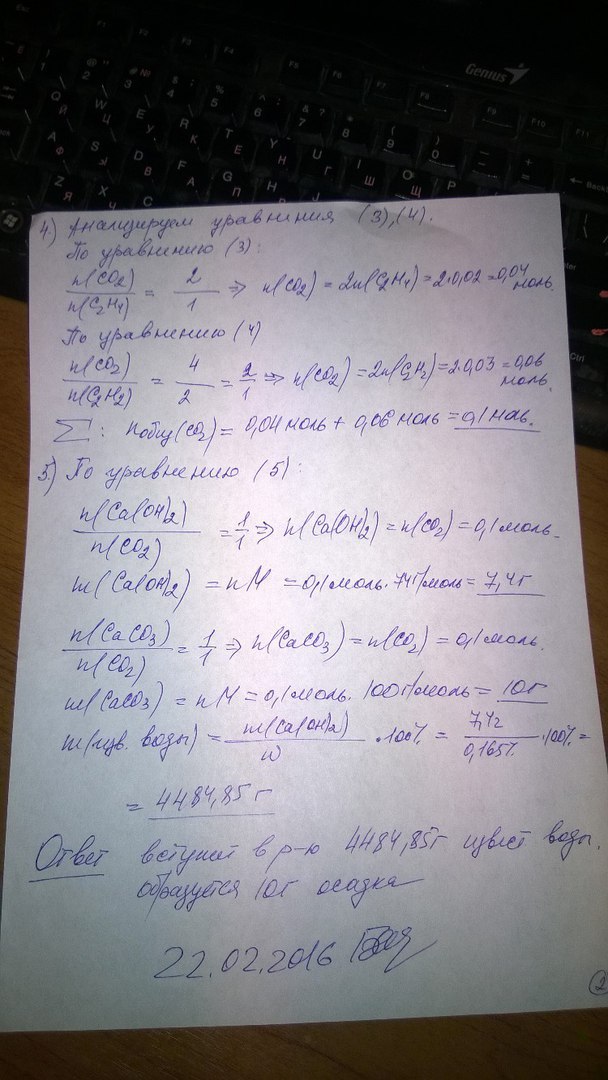 Genius
4) Анализируем уравнения (3), (4).
По уравнению (3):
n(CO2)/n(C2H4) = 2/1 => n(CO2) = 2n(C2H4) = 2·0,02 = 0,04 моль.
По уравнению (4)
n(CO2)/n(C2H2) = 4/2 = 2/1 => n(CO2) = 2n(C2H2) = 2·0,03 = 0,06 моль.
Σ: nобщ(CO2) = 0,04 моль + 0,06 моль = 0,1 моль.
5) По уравнению (5):
n(Ca(OH)2)/n(CO2) = 1/1 => n(Ca(OH)2) = n(CO2) = 0,1 моль.
m(Ca(OH)2) = nM = 0,1 моль · 74 г/моль = 7,4 г
n(CaCO3)/n(CO2) = 1/1 => n(CaCO3) = n(CO2) = 0,1 моль.
m(CaCO3) = nM = 0,1 моль · 100 г/моль = 10 г
m(изв. воды) = m(Ca(OH)2)/w · 100% = 7,4 г/0,165% · 100% =
= 4484,85 г
Ответ вступит в р-ю 4484,85 г извест воды.
образуется 10 г осадка
22.02.2016
2